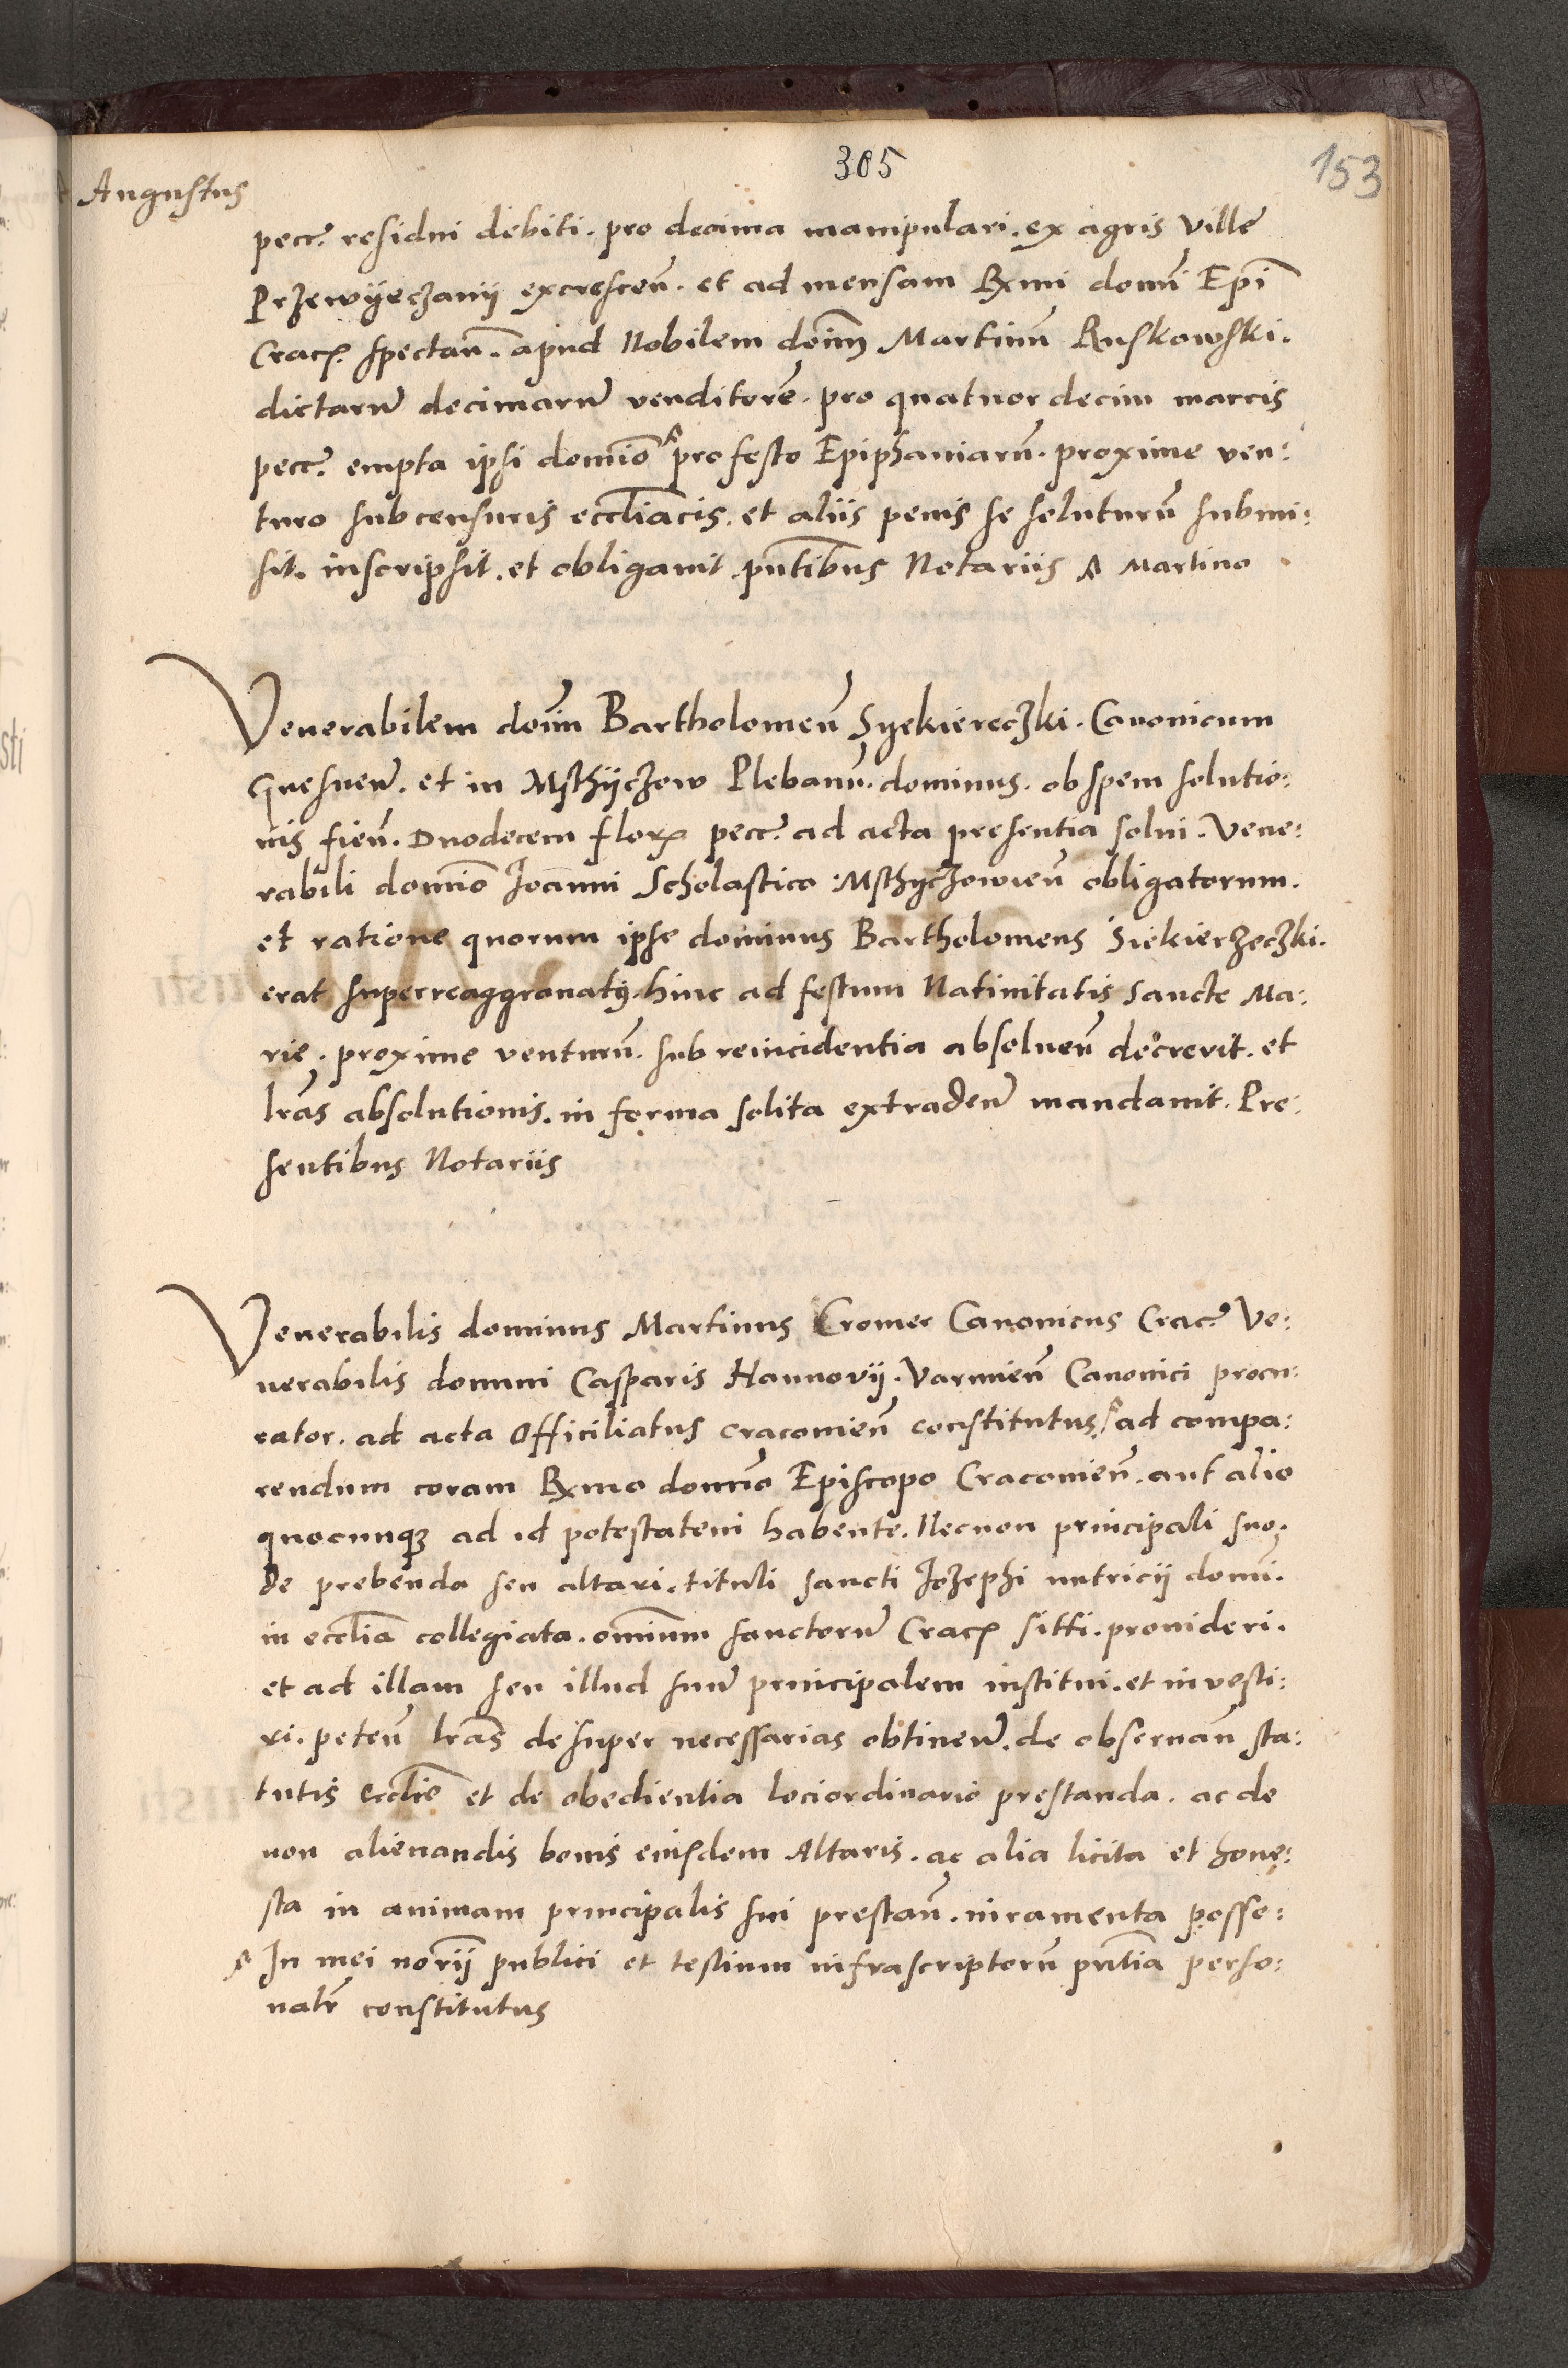 305
153
Augustus
pecc. residui debiti. pro decima manipulari. ex agris ville
Przewyeczany excrescen̄. et ad mensam Rxmi domī Epī
Crac̄. spectan̄. apud Nobilem doīm Martinū Ruskowski.
dictarum decimarum venditorē. pro quatuor decim marcis
pecc. empta ipsi domīo ^ pro festo Epiphaniarū. proxime ven:
turo sub censuris eccl̄iacis. et aliis penis se soluturū submi:
sit. inscripsit. et obligauit. pn̄tibus Notariis ^ Martino
Venerabilem doīm Bartholomeū Syekiereczki. Canonicum
Gnesnen̄. et in Msthyczow Plebanū. dominus. ob spem solutio:
nis fien̄. Duodecem florȝ pecc. ad acta presentia solui. Vene:
rabili domīo Joanni Scholastico Msthyczowien̄ obligatorum.
et ratione quorum ipse dominus Bartholomeus Siekierzeczki.
erat superreaggrauatꝰ. hinc ad festum Natiuitatis Sancte Ma:
rie. proxime venturū. sub reincidentia absoluen̄ decreuit. et
lrās absolutionis. in forma solita extraden̄ mandauit. Pre:
sentibus Notariis
Venerabilis dominus Martinus Cromer Canonicus Crac̄ Ve:
nerabilis domini Casparis Hannovij. Varmien̄ Canonici procu:
rator. ad acta Officiliatus cracouien̄ constitutus. ^ ad compa:
rendum coram Rxmo domīo Episcopo Cracouien̄. aut alio
quocunqȝ ad id potestatem habente. Necnon principali suo.
de prebenda seu altari. tituli sancti Jozephi nutricij domī.
in eccl̄ia collegiata. omīum sanctorum Crac̄ sitti. prouideri.
et ad illam seu illud suum principalem institui. et inuesti:
ri. peten̄ lrās desuper necessarias obtinen̄. de obseruan̄ sta:
tutis eccl̄ie et de obedientia lociordinario prestanda. ac de
non alienandis bonis eiusdem Altaris. ac alia licita et hone:
sta in animam principalis sui prestan̄. iuramenta posse:
^ In mei norīj publici et testium infrascriptorū pn̄tia perso:
nalr̄ constitutus